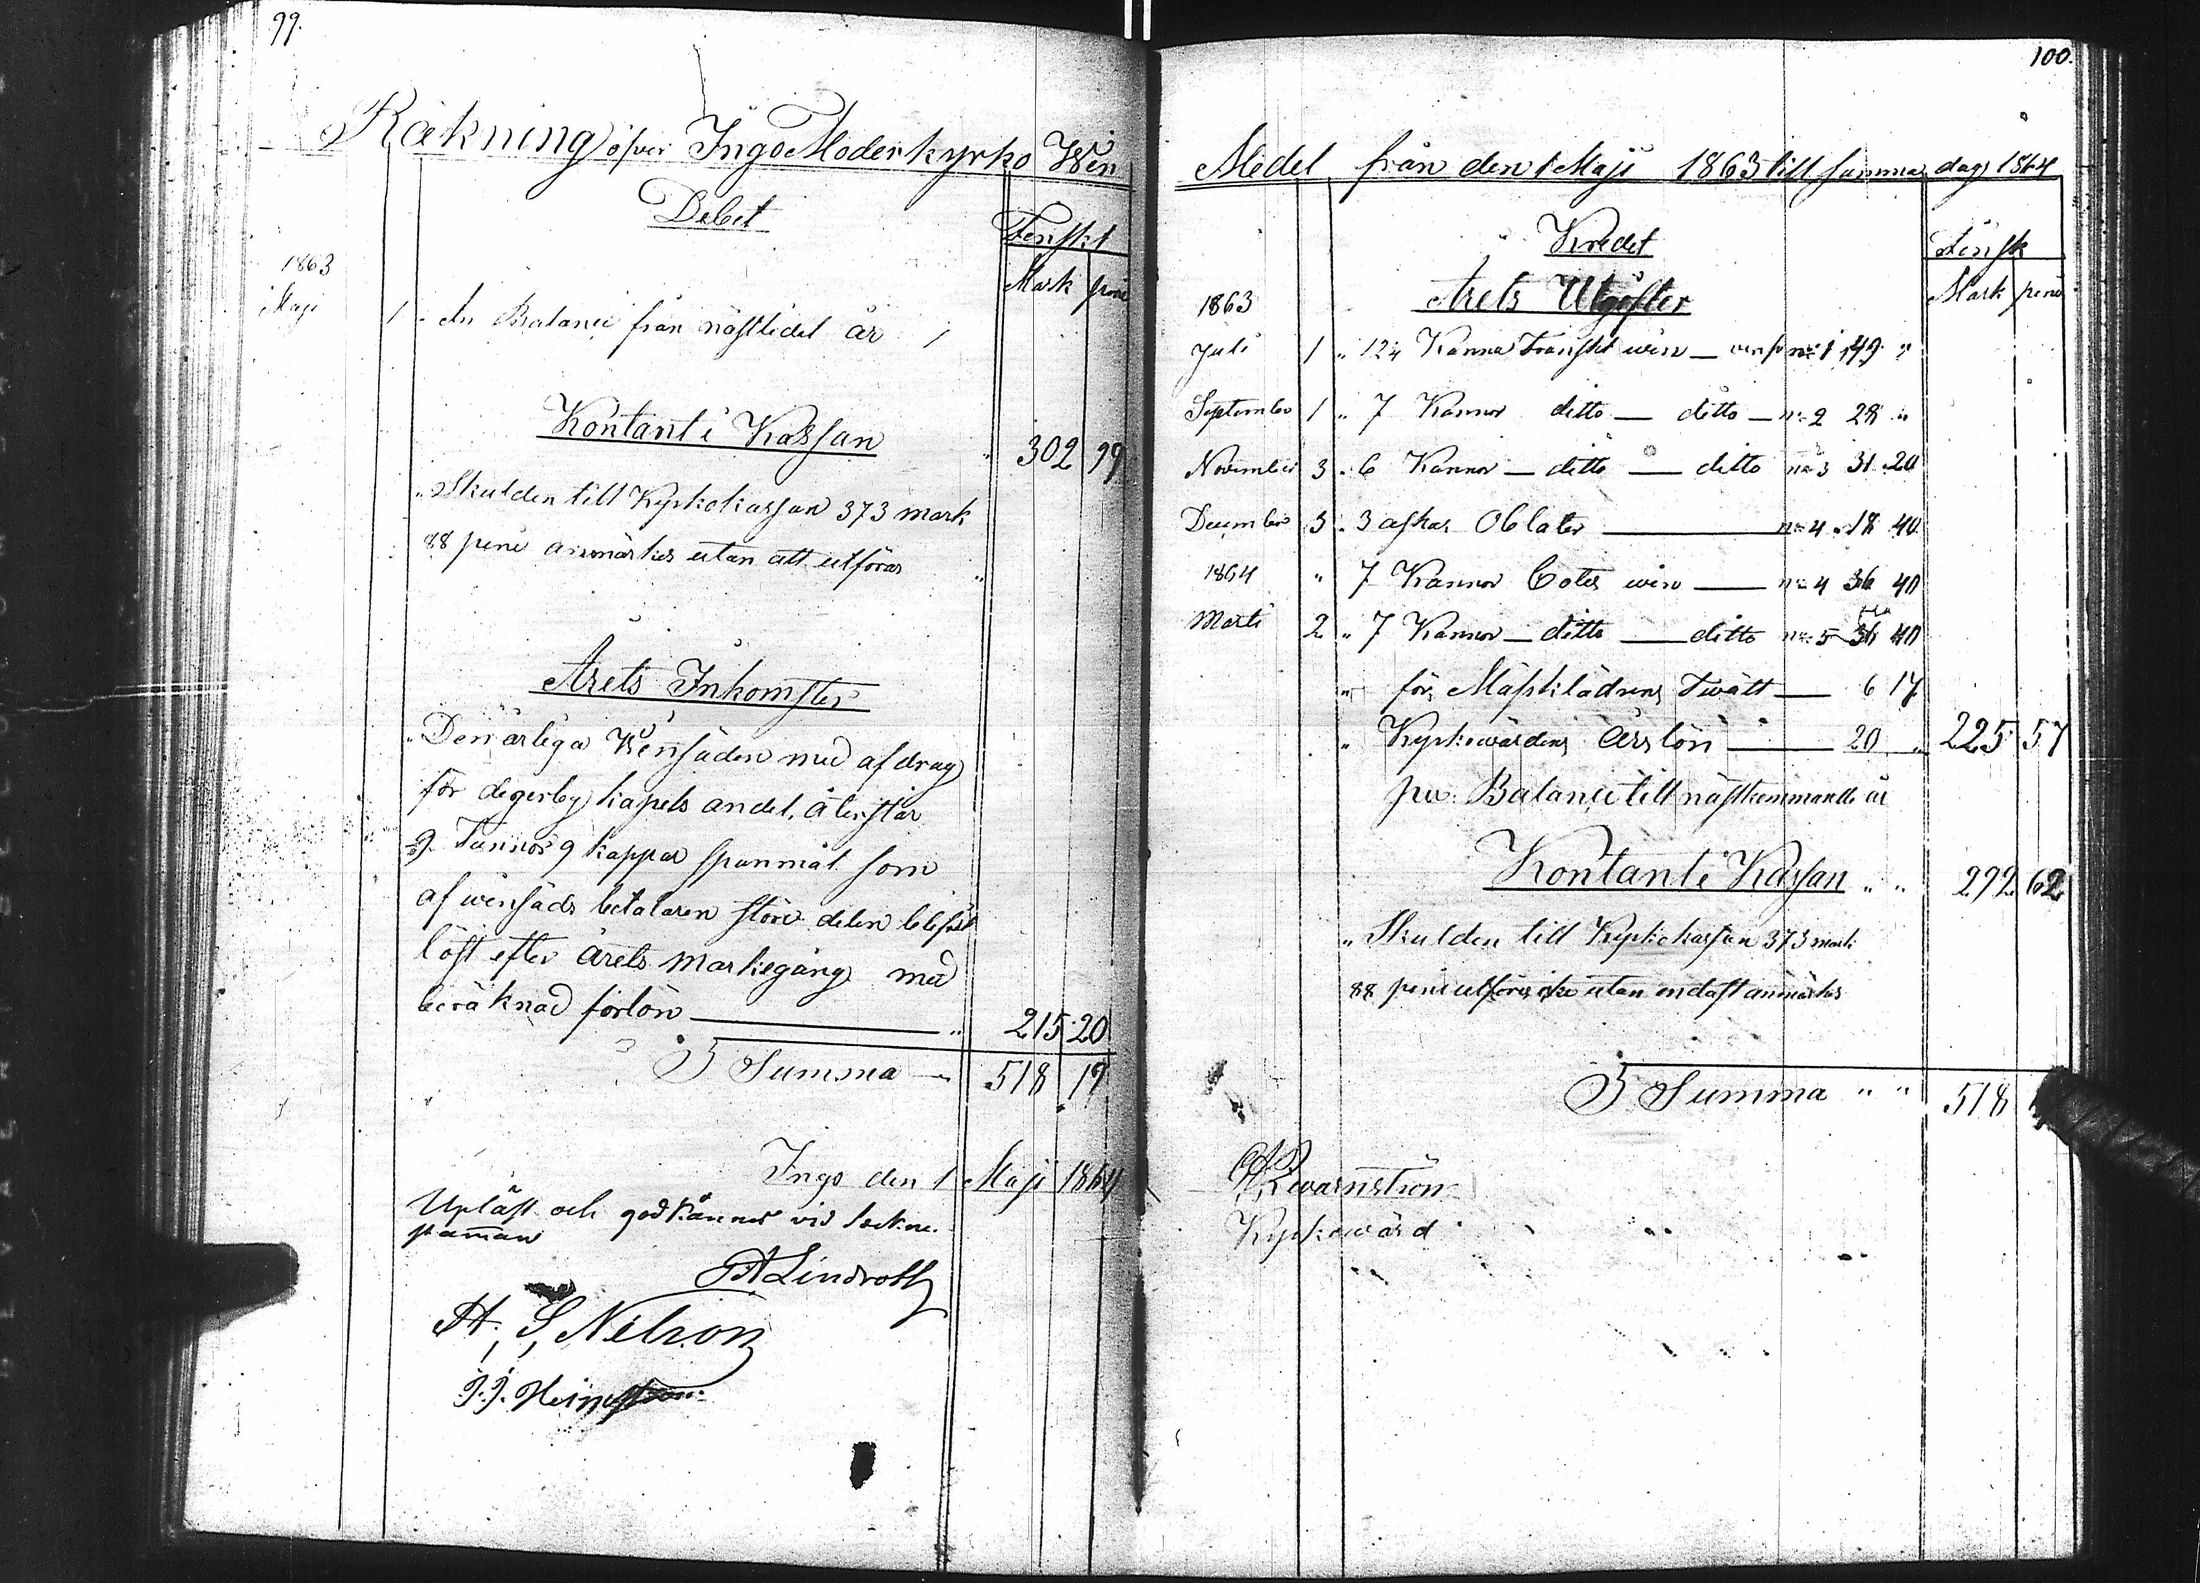 99.
Räkning öfver Ingo Moderkyrko Win
Debet
Finskt
Mark peni
1863
Maji 1 An Balance från nästlidet år
Kontant i Kassan " 302 99
" Skulden till Kyrkokassan 373 mark
88 peni anmärkes utan att utföras "
Årets Inkomster
" Den årliga Winsäden med afdrag
för degerby kapels andel, återstår
9 Tunnor 9 kappar spanmål som
af winsäds betalaren större delen blifvit
löst efter årets markegång med
beräknad förlön " 215 20
Summa 518 19
Ingo den 1 Maji 1864
Upläst och godkännes vid sockne
stämman
Lindroth
H. S, Nelson
J. J.
100.
Medel från den 1 Maji 1863 till samma dag 1864
Kredit
Finsk
Mark peni
1863 Årets Utgifter
Juli 1 " 12¼ Kanna Franskt win — no 1 49 "
September 1 " 7 Kannor ditto — ditto — no 2 28 "
November 3 " 6 Kannor — ditto — ditto no 3 31 20
December 3 " 3 askar Oblater — no 4 18 40
1864 " 7 Kannor Cotes win — no 4 36 40
Marti 2 " 7 Kannor — ditto — ditto no 5 36 40
" för Mässklädrens Twätt — 6 17
" Kyrkowärdens årslön — 20 " 225 57
per Balance till nästkommande år
Kontant i Kassan " " 292 62
" Skulden till Kyrkokassan 373 mark
88 peni utföres icke utan endast anmärkes
Summa " " 518
Qwarnström
Kyrkowärd